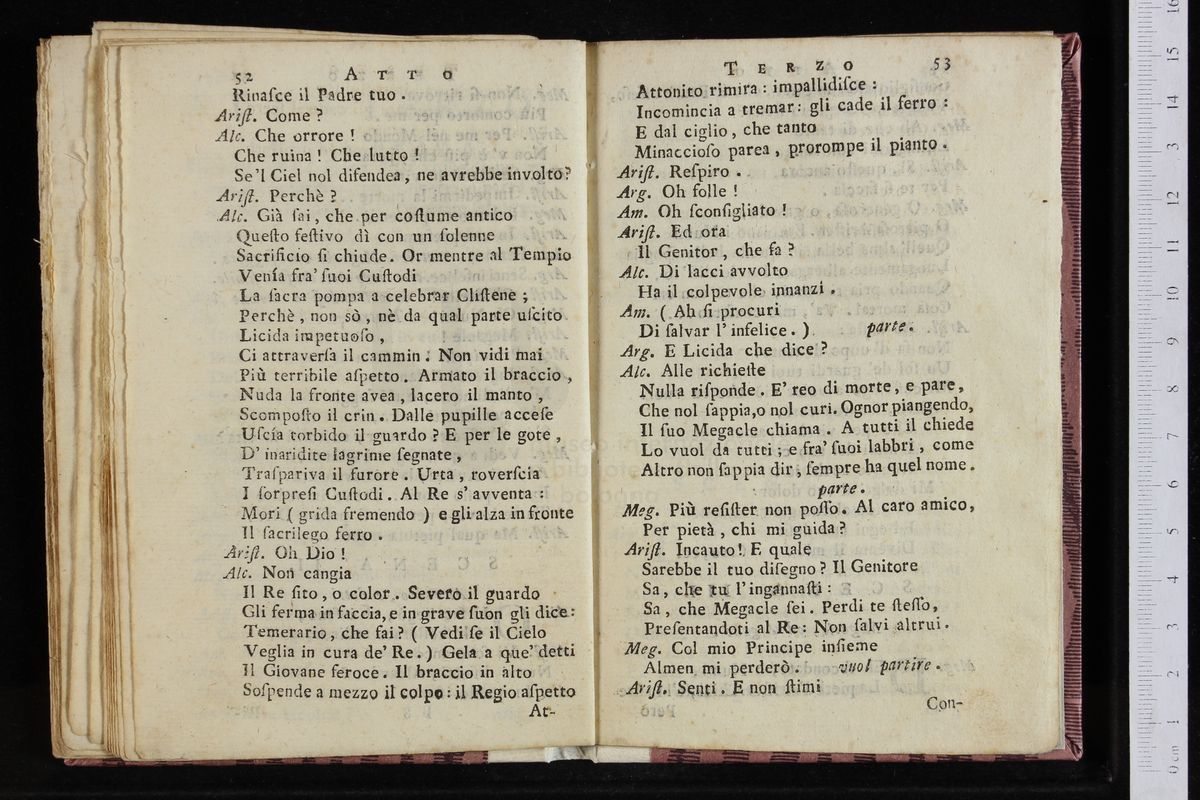 52 ATTO
Rinaſce il Padre tuo.
Ariſt. Come?
Alc. Che orrore!
Che ruina! Che lutto!
Se'l Ciel nol difendea, ne avrebbe involto?
Ariſt. Perchè?
Alc. Già ſai, che per coſtume antico
Queſto feſtivo dì con un ſolenne
Sacrificio ſi chiude. Or mentre al Tempio
Venía fra' ſuoi Cuſtodi
La ſacra pompa a celebrar Cliſtene;
Perchè, non sò, nè da qual parte uſcito
Licida impetuoſo,
Ci attraverſa il cammin. Non vidi mai
Più terribile aſpetto. Armato il braccio,
Nuda la fronte avea, lacero il manto,
Scompoſto il crin. Dalle pupille acceſe
Uſcía torbido il guardo? E per le gote,
D' inaridite lagrime ſegnate,
Traſpariva il furore. Urta, roverſcia
I ſorpreſi Cuſtodi. Al Re s' avventa:
Mori (grida fremendo) e gli alza in fronte
Il ſacrilego ferro.
Ariſt. Oh Dio!
Alc. Non cangia
Il Re ſito, o color. Severo il guardo
Gli ferma in faccia, e in grave ſuon gli dice:
Temerario, che fai? (Vedi ſe il Cielo
Veglia in cura de' Re.) Gela a que' detti
Il Giovane feroce. Il braccio in alto
Soſpende a mezzo il colpo: il Regio aſpetto
At-
TERZO 53
Attonito rimira: impallidiſce:
Incomincia a tremar: gli cade il ferro:
E dal ciglio, che tanto
Minaccioſo parea, prorompe il pianto.
Ariſt. Reſpiro.
Arg. Oh folle!
Am. Oh ſconſigliato!
Ariſt. Ed ora
Il Genitor, che fa?
Alc. Di lacci avvolto
Ha il colpevole innanzi.
Am. (Ah ſi procuri
Di ſalvar l' infelice.) parte.
Arg. E Licida che dice?
Alc. Alle richieſte
Nulla riſponde. E' reo di morte, e pare,
Che nol ſappia, o nol curi. Ognor piangendo,
Il ſuo Megacle chiama. A tutti il chiede
Lo vuol da tutti; e fra' ſuoi labbri, come
Altro non ſappia dir, ſempre ha quel nome.
parte.
Meg. Più reſiſter non poſſo. Al caro amico,
Per pietà, chi mi guida?
Ariſt. Incauto! E quale
Sarebbe il tuo diſegno? Il Genitore
Sa, che tu l'ingannaſti:
Sa, che Megacle ſei. Perdi te ſteſſo,
Preſentandoti al Re: Non ſalvi altrui.
Meg. Col mio Principe inſieme
Almen mi perderò. vuol partire.
Ariſt. Senti. E non ſtimi
Con-